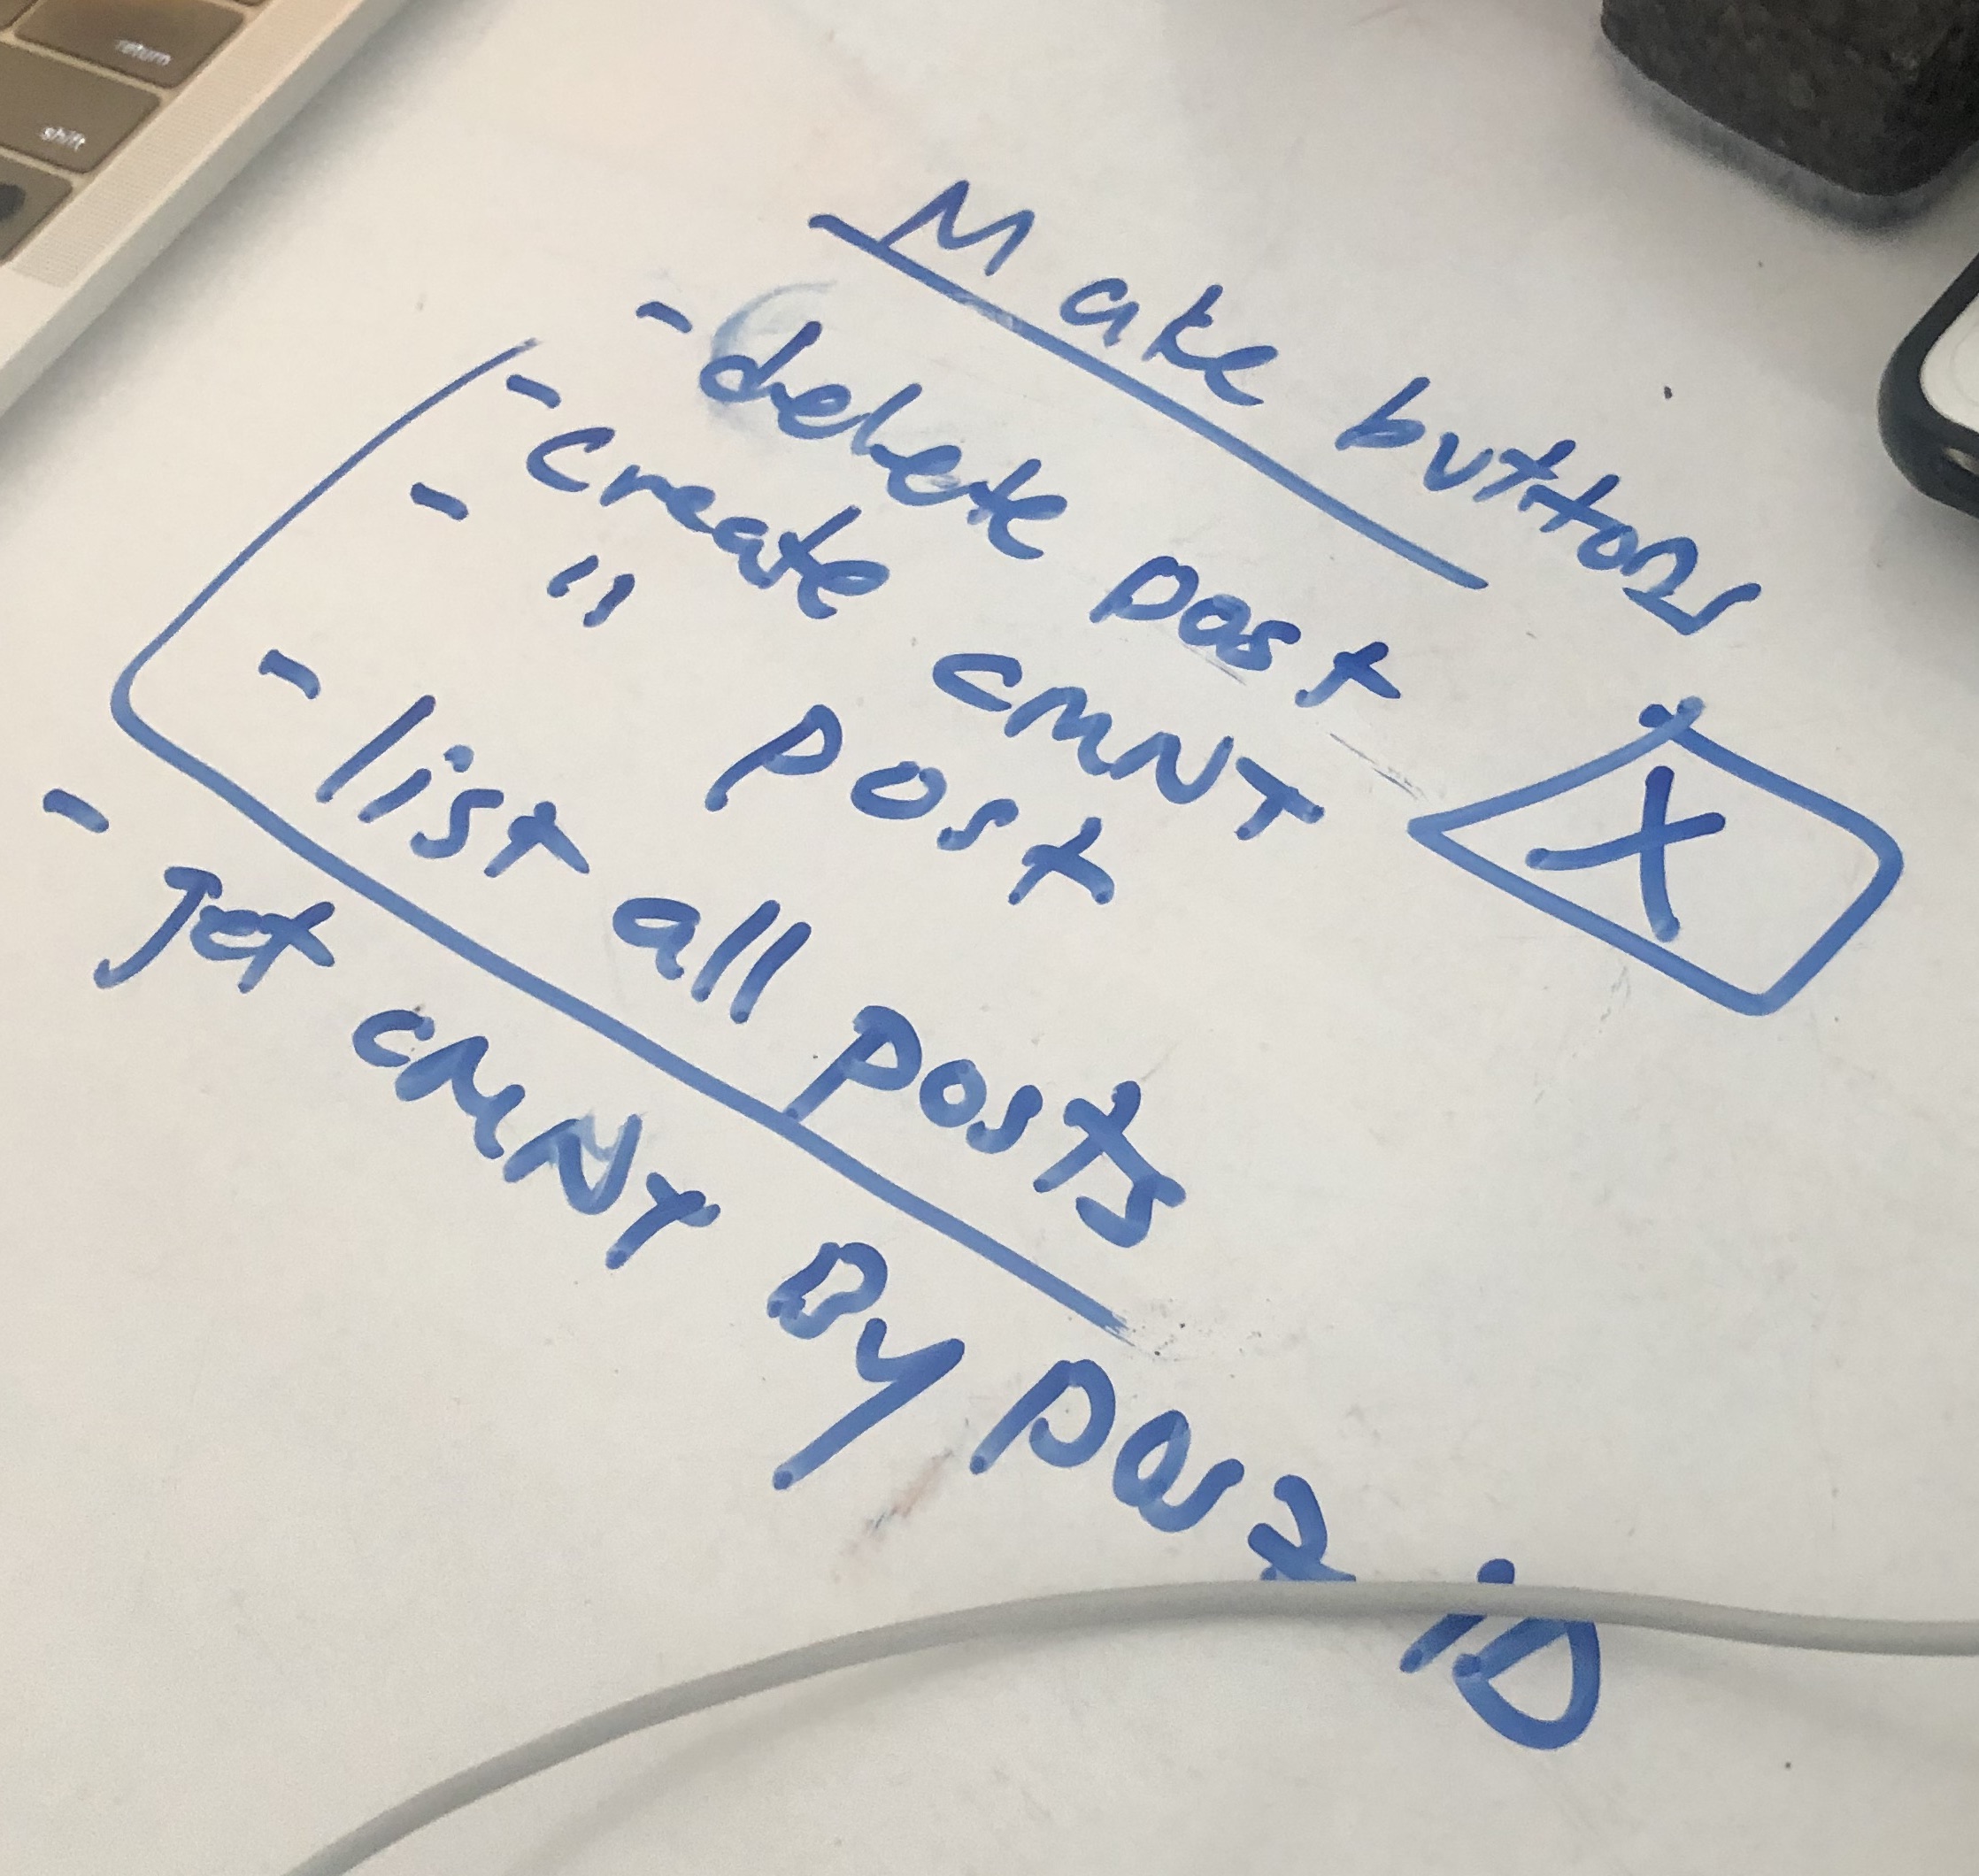 return
shift
Make buttons
- delete post
- create CMNT
- " post
- list all posts
- get CMNT By post iD
X